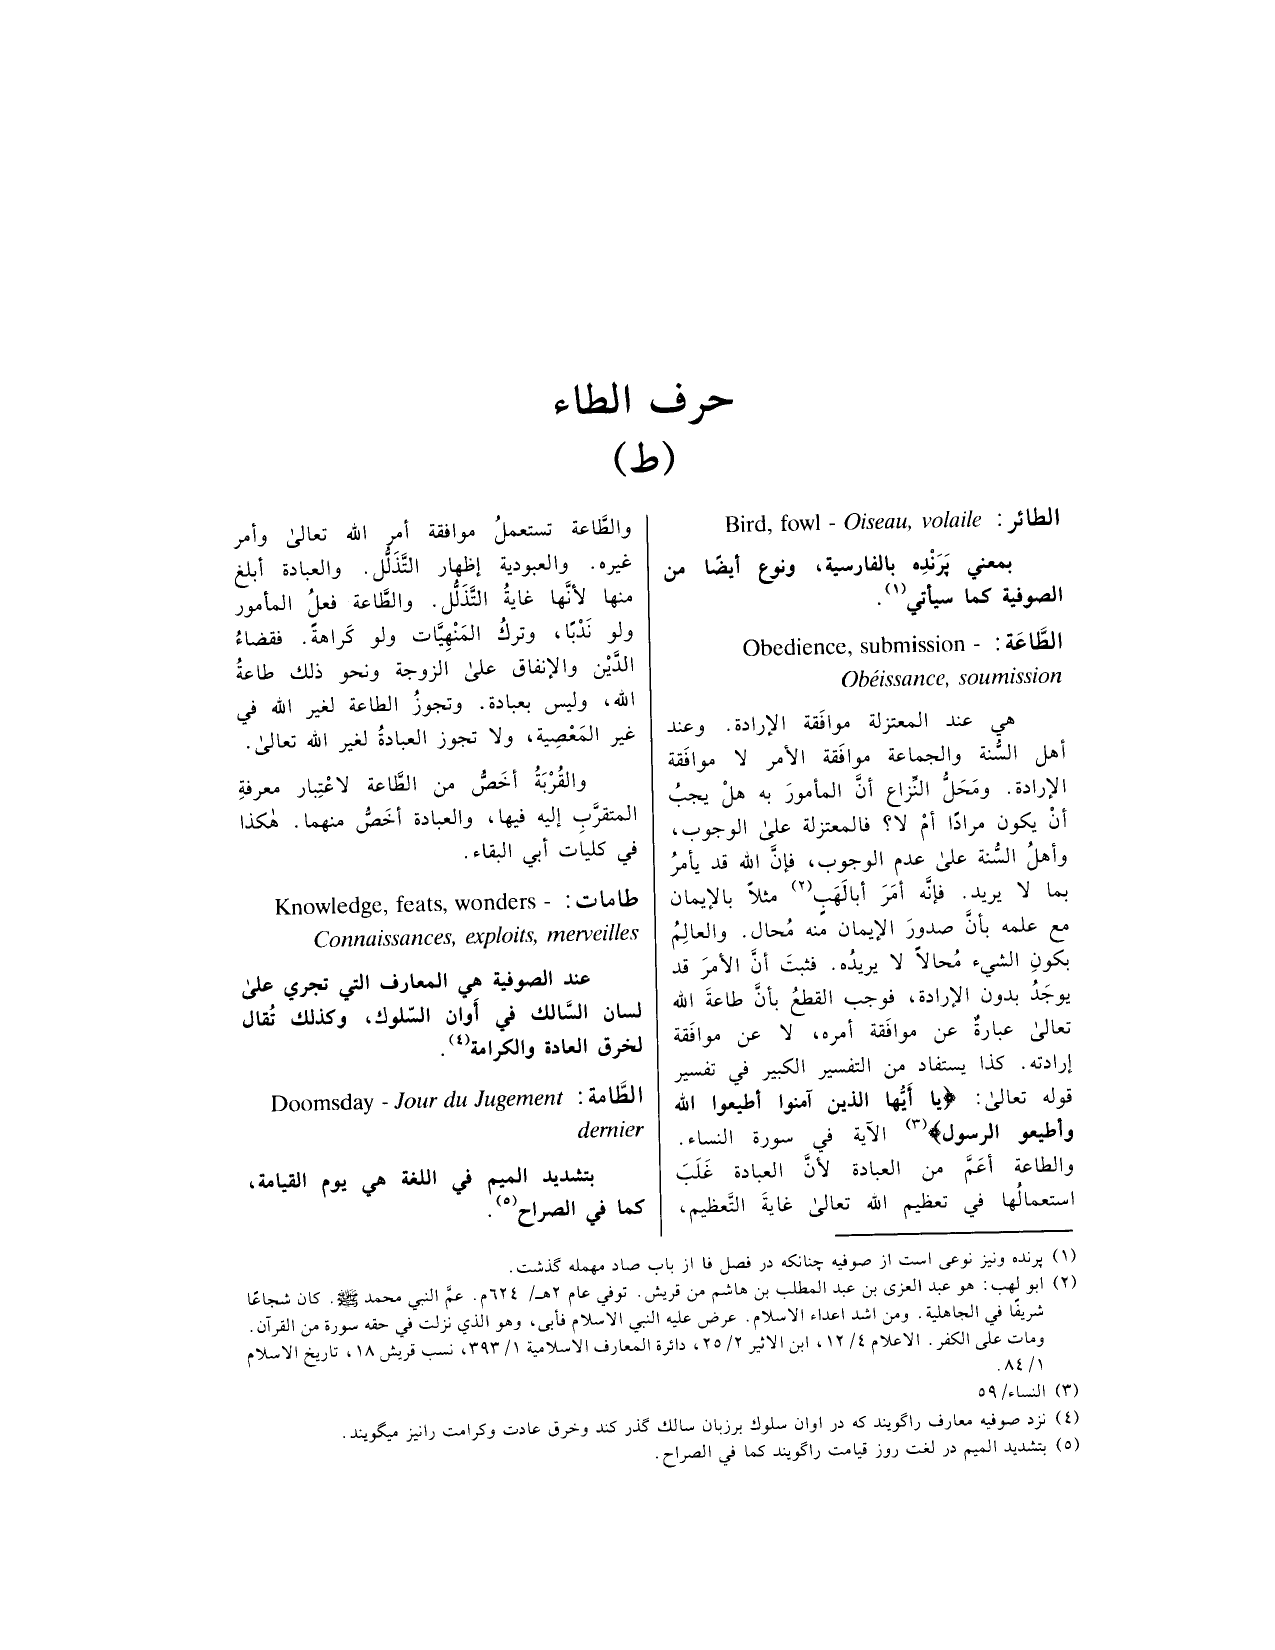 حرف الطاء
(ط)
الطائر: Bird, fowl - Oiseau, volaile
بمعني پَرَنْدِه بالفارسية، ونوع أيضًا من
الصوفية كما سيأتي(١).
الطَّاعَة: Obedience, submission -
Obéissance, soumission
هي عند المعتزلة موافَقة الإرادة. وعند
أهل السُّنة والجماعة موافَقة الأمر لا موافَقة
الإرادة. ومَحَلُّ النِّزاع أنَّ المأمورَ به هلْ يجبُ
أنْ يكون مرادًا أمْ لا؟ فالمعتزلة علىٰ الوجوب،
وأهلُ السُّنة علىٰ عدم الوجوب، فإنَّ الله قد يأمرُ
بما لا يريد. فإنَّه أمَرَ أبالَهَبٍ(٢) مثلاً بالإيمان
مع علمه بأنَّ صدورَ الإيمان منه مُحال. والعالِمُ
بكونِ الشيء مُحالاً لا يريدُه. فثبتَ أنَّ الأمرَ قد
يوجَدُ بدون الإرادة، فوجب القطعُ بأنَّ طاعةَ الله
تعالىٰ عبارةٌ عن موافَقة أمره، لا عن موافَقة
إرادته. كذا يستفاد من التفسير الكبير في تفسير
قوله تعالىٰ: ﴿يا أَيُّها الذين آمنوا أطيعوا الله
وأطيعو الرسول﴾(٣) الآية في سورة النساء.
والطاعة أعَمَّ من العبادة لأنَّ العبادة غَلَبَ
استعمالُها في تعظيم الله تعالىٰ غايةَ التَّعظيم،
والطَّاعة تستعملُ موافقة أمرِ الله تعالىٰ وأمر
غيره. والعبودية إظهار التَّذَلُّل. والعبادة أبلغ
منها لأنَّها غايةُ التَّذَلُّل. والطَّاعة فعلُ المأمور
ولو نَدْبًا، وتركُ المَنْهِيَّات ولو كَراهةً. فقضاءُ
الدَّيْن والإنفاق علىٰ الزوجة ونحو ذلك طاعةُ
الله، وليس بعبادة. وتجوزُ الطاعة لغير الله في
غير المَعْصِية، ولا تجوز العبادةُ لغير الله تعالىٰ.
والقُرْبَةُ أخَصُّ من الطَّاعة لاعْتِبار معرفةِ
المتقرَّبِ إليه فيها، والعبادة أخَصُّ منهما. هٰكذا
في كليات أبي البقاء.
طامات: Knowledge, feats, wonders -
Connaissances, exploits, merveilles
عند الصوفية هي المعارف التي تجري علىٰ
لسان السَّالك في أَوان السّلوك، وكذلك تُقال
لخرق العادة والكرامة(٤).
الطَّامة: Doomsday - Jour du Jugement
dernier
بتشديد الميم في اللغة هي يوم القيامة،
كما في الصراح(٥).
(١) پرنده ونيز نوعى است از صوفيه چنانكه در فصل فا از باب صاد مهمله گذشت.
(٢) ابو لهب: هو عبد العزى بن عبد المطلب بن هاشم من قريش. توفي عام ٢هـ/ ٦٢٤م. عمَّ النبي محمد ﷺ. كان شجاعًا
شريفًا في الجاهلية. ومن اشد اعداء الاسلام. عرض عليه النبي الاسلام فأبى، وهو الذي نزلت في حقه سورة من القرآن.
ومات على الكفر. الاعلام ٤/ ١٢، ابن الاثير ٢/ ٢٥، دائرة المعارف الاسلامية ١/ ٣٩٣، نسب قريش ١٨، تاريخ الاسلام
١/ ٨٤.
(٣) النساء/ ٥٩
(٤) نزد صوفيه معارف راگويند كه در اوان سلوك برزبان سالك گذر كند وخرق عادت وكرامت رانيز ميگويند.
(٥) بتشديد الميم در لغت روز قيامت راگويند كما في الصراح.